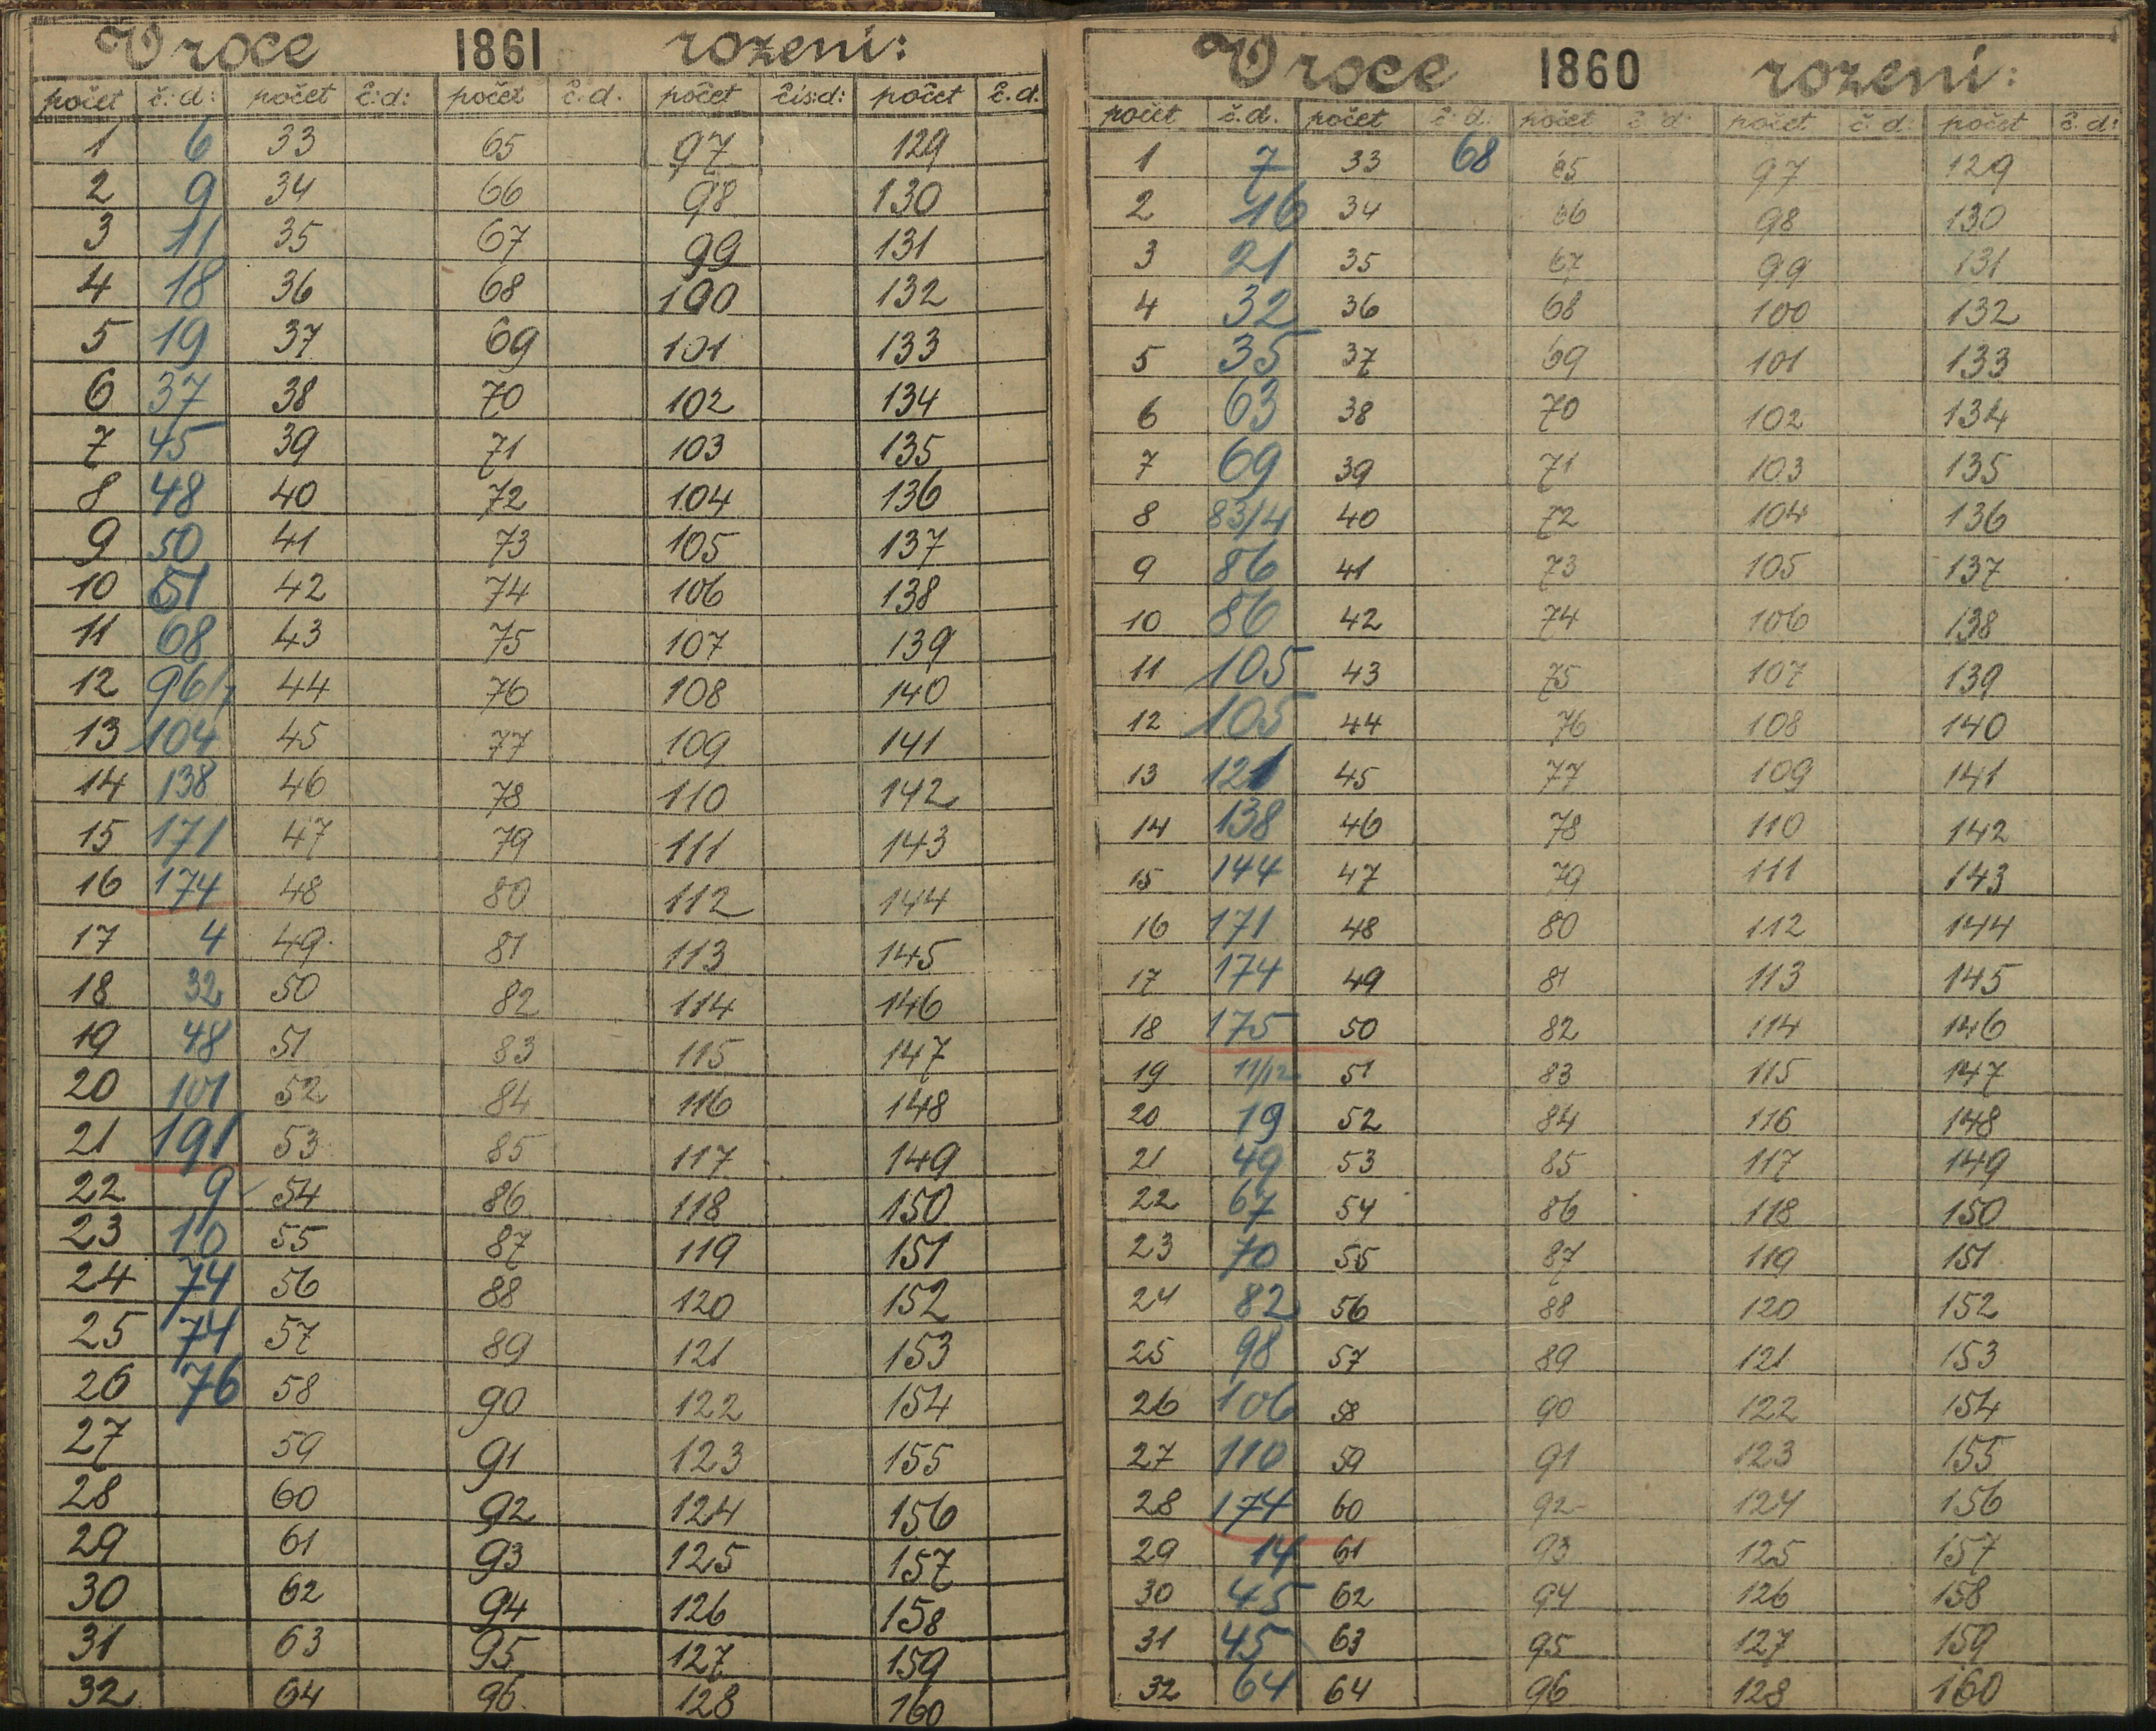 V roce 1861 rození:
počet č:d: počet č:d: počet č.d. počet čís:d: počet č.d.
1 6 33 65 97 129
2 9 34 66 98 130
3 11 35 67 99 131
4 18 36 68 100 132
5 19 37 69 101 133
6 37 38 70 102 134
7 45 39 71 103 135
8 48 40 72 104 136
9 50 41 73 105 137
10 51 42 74 106 138
11 68 43 75 107 139
12 96/7 44 76 108 140
13 104 45 77 109 141
14 138 46 78 110 142
15 171 47 79 111 143
16 174 48 80 112 144
17 4 49 81 113 145
18 32 50 82 114 146
19 48 51 83 115 147
20 101 52 84 116 148
21 191 53 85 117 149
22 9 54 86 118 150
23 10 55 87 119 151
24 74 56 88 120 152
25 74 57 89 121 153
26 76 58 90 122 154
27 59 91 123 155
28 60 92 124 156
29 61 93 125 157
30 62 94 126 158
31 63 95 127 159
32 64 96 128 160
V roce 1860 rození:
počet č.d. počet č.d. počet č.d. počet č.d. počet č.d.
1 7 33 68 65 97 129
2 16 34 66 98 130
3 21 35 67 99 131
4 32 36 68 100 132
5 35 37 69 101 133
6 63 38 70 102 134
7 69 39 71 103 135
8 83/4 40 72 104 136
9 86 41 73 105 137
10 86 42 74 106 138
11 105 43 75 107 139
12 105 44 76 108 140
13 121 45 77 109 141
14 138 46 78 110 142
15 144 47 79 111 143
16 171 48 80 112 144
17 174 49 81 113 145
18 175 50 82 114 146
19 11/12 51 83 115 147
20 19 52 84 116 148
21 49 53 85 117 149
22 67 54 86 118 150
23 70 55 87 119 151
24 82 56 88 120 152
25 98 57 89 121 153
26 106 58 90 122 154
27 110 59 91 123 155
28 174 60 92 124 156
29 14 61 93 125 157
30 45 62 94 126 158
31 45 63 95 127 159
32 64 64 96 128 160